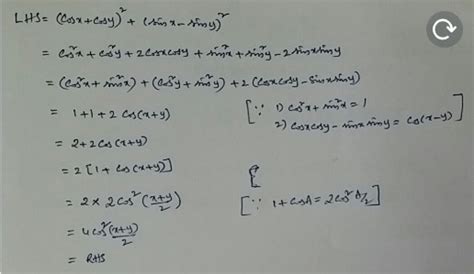 LHS = (cosx + cosy)² + (sinx - siny)²
= cos²x + cos²y + 2cosxcosy + sin²x + sin²y - 2sinxsiny
= (cos²x + sin²x) + (cos²y + sin²y) + 2(cosxcosy - sinxsiny)
= 1+1+2 cos(x+y) [∵ 1) cos²x + sin²x = 1
2) cosxcosy - sinxsiny = cos(x-y)]
= 2+2cos(x+y)
= 2[1 + cos(x+y)]
= 2 × 2cos²(x+y/2) [∵ 1 + cosA = 2cos² A/2]
= 4cos²(x+y)/2
= RHS